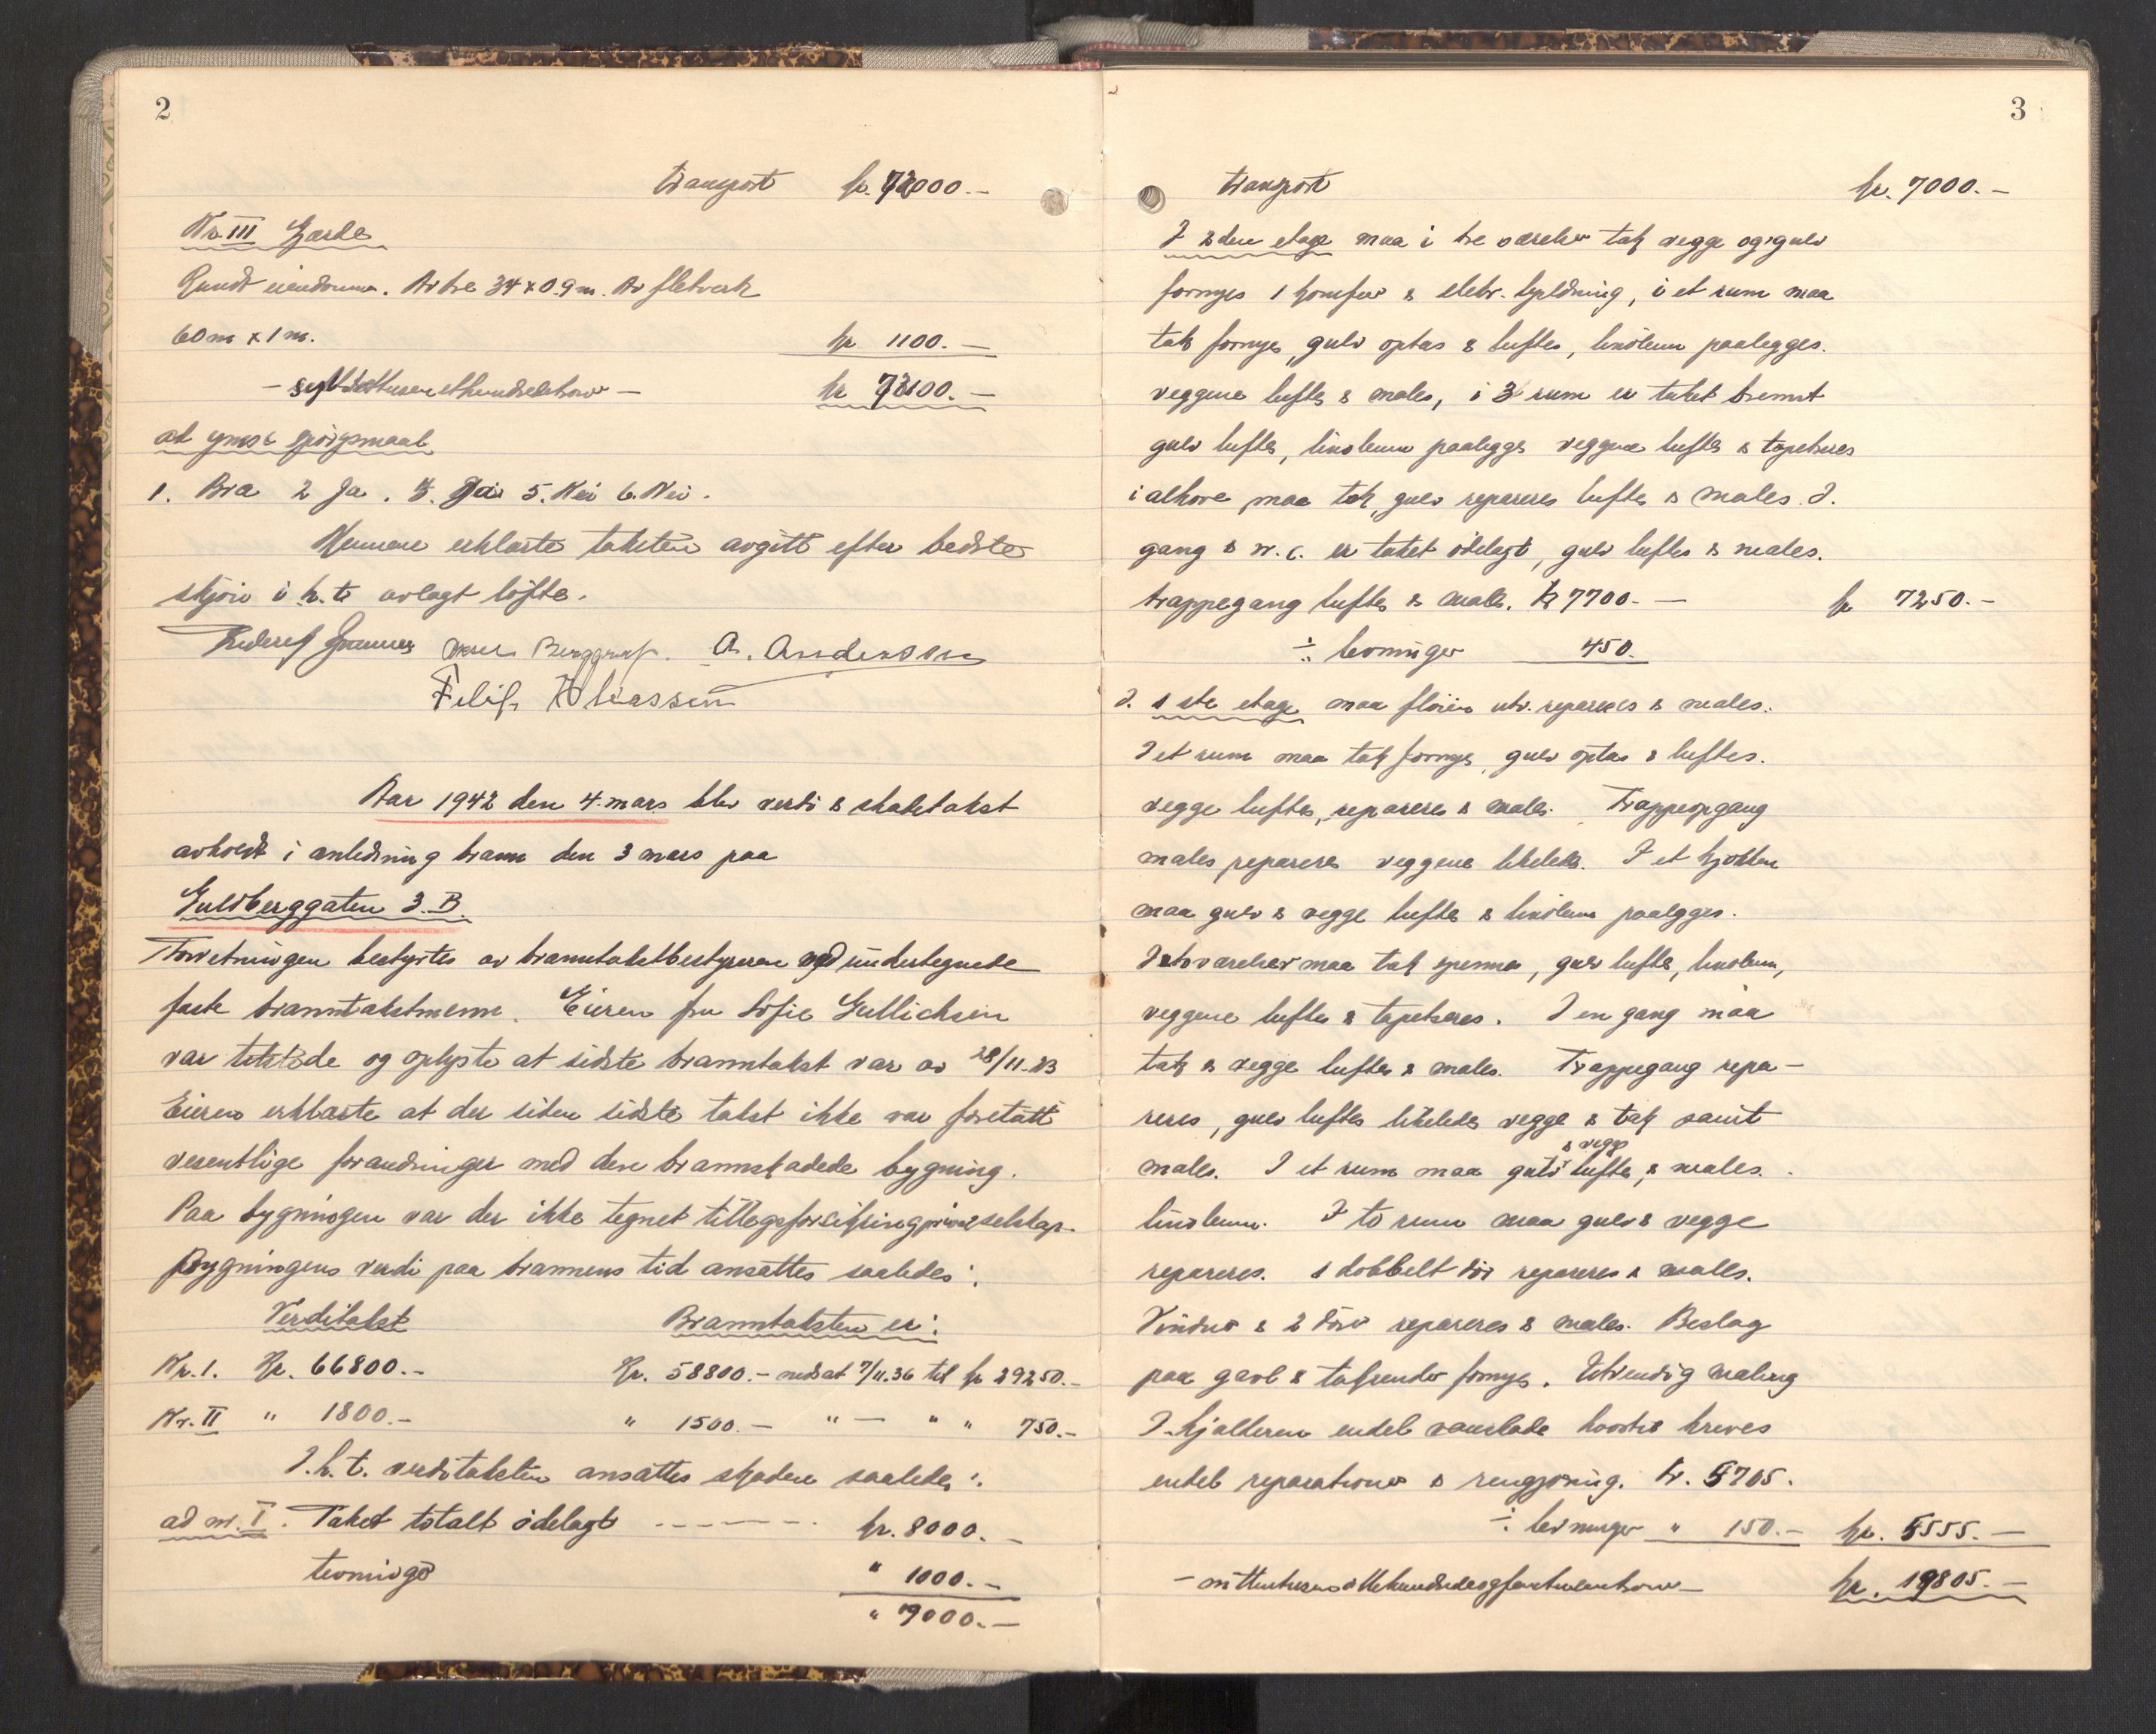 2
transport kr. 72000.-
Nr. III Gjærde
Rundt eiendommen. Av tre 34 x 0.9 m. Av fletverk
60 m x 1 m. kr 1100.-
kr 73100.-
ad ymse spörgsmaal
1. Bra 2 Ja. 5. Nei 6. Nei.
erklærte taksten avgitt efter bedste
skjön i h. t. avlagt löfte.
A. Anderson
Filip
Aar 1942 den 4. mars blev verdi & skadetakst
avholdt i anledning brann den 3 mars paa
Guldberggaten 3.B.
Forretningen bestyrtes av branntakstbestyreren med undertegnede
faste branntakstmenn. Eieren fru Sofie Gullichsen
var tilstede og oplyste at sidste branntakst var av 28/11-23
Eieren erklærte at der siden sidste takst ikke var foretatt
vesentlige forandringer med den brannskadede bygning.
Paa bygningen var der ikke tegnet tillegsforsikring privat selskap.
Bygningens verdi paa brannens tid ansattes saaledes:
Verditakst Branntaksten er:
Nr. 1. Kr. 66800.- Kr. 58800.- nedsat 7/11.36 til kr 29250.-
Nr. II " 1800.- " 1500.- " — " " 750.-
I h. t. verditaksten ansattes skaden saaledes:
ad nr. I. Taket totalt ödelagt kr. 8000.-
levninger " 1000.-
" 7000.-
3
transport kr. 7000.-
I 2den etage maa i tre værelser tak vegge og gulv
fornyes 1 komfur & elektr. ledning, i et rum maa
tak fornyes, gulv optas & luftes, linoleum paalegges.
veggene luftes & males, i 3 rum er taket brennt
gulv luftes, linoleum paalegges veggene luftes & tapetseres
i alkove maa tak, gulv repareres luftes & males. I.
gang & w.c. er taket ödelagt, gulv luftes & males.
trappegang luftes & males. kr 7700.- kr 7250.-
÷ levninger 450.
I. 1ste etage maa flöien utv. repareres & males.
I et rum maa tak fornyes, gulv optas & luftes.
vegge luftes, repareres & males. Trappeopgang
males repareres veggene likeledes. I et kjökken
maa gulv & vegge luftes & linoleum paalegges.
I to værelser maa tak gulv luftes, linoleum,
veggene luftes & tapetseres. I en gang maa
tak & vegge luftes & males. Trappegang repa-
reres, gulv luftes likeledes vegge & tak samt
& vegge
males. I et rum maa gulv luftes, & males.
linoleum. I to rum maa gulv & vegge
repareres. 1 dobbelt dör repareres & males.
Vinduer & 2 dörer repareres & males. Beslag
paa gavl & takrender fornyes. Utvendig maling
I kjelderen endel vannskade hvorfor kreves
endel reparationer & rengjöring. kr. 5705.
÷ levninger " 150.- kr. 5555.-
- nittentusenottehundredeogfemkroner - kr. 19805.-